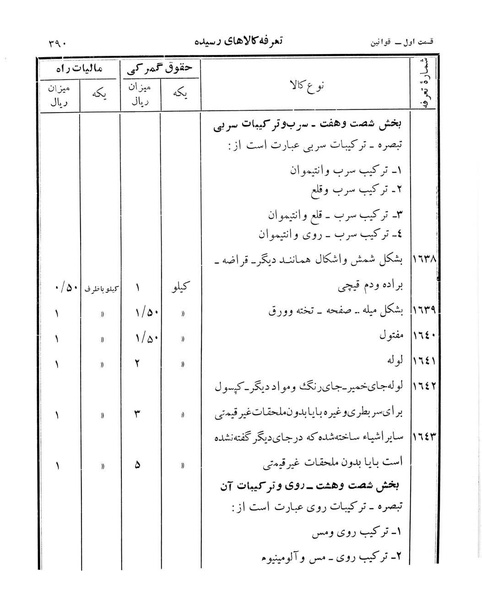 قسمت اول ــ قوانین
تعرفه کالاهای رسیده
۳۹۰
شمارهٔ تعرفه
نوع کالا
حقوق گمرکی
مالیات راه
یکه
میزان ریال
یکه
میزان ریال
بخش شصت وهفت ــ سرب وترکیبات سربی
تبصره ــ ترکیبات سربی عبارت است از:
۱ــ ترکیب سرب وانتیموان
۲ــ ترکیب سرب وقلع
۳ــ ترکیب سرب ــ قلع وانتیموان
٤ــ ترکیب سرب ــ روی وانتیموان
۱٦۳۸ بشکل شمش واشکال همانند دیگرــ قراضه ــ
براده ودم قیچی کیلو ۱ کیلو باظرف ۰/۵۰
۱٦۳۹ بشکل میله ــ صفحه ــ تخته وورق « ۱/۵۰ « ۱
۱٦٤۰ مفتول « ۱/۵۰ « ۱
۱٦٤۱ لوله « ۲ « ۱
۱٦٤۲ لوله‌جای‌خمیرــ‌جای‌رنگ ومواد دیگرــ کپسول
برای‌سربطری‌وغیره بایا بدون ملحقات‌غیرقیمتی « ۳ « ۱
۱٦٤۳ سایراشیاء ساخته‌شده‌که درجای‌دیگر گفته‌نشده
است بایا بدون ملحقات غیرقیمتی « ۵ « ۱
بخش شصت وهشت ــ روی وترکیبات آن
تبصره ــ ترکیبات روی عبارت است از:
۱ــ ترکیب روی ومس
۲ــ ترکیب روی ــ مس و آلومینیوم